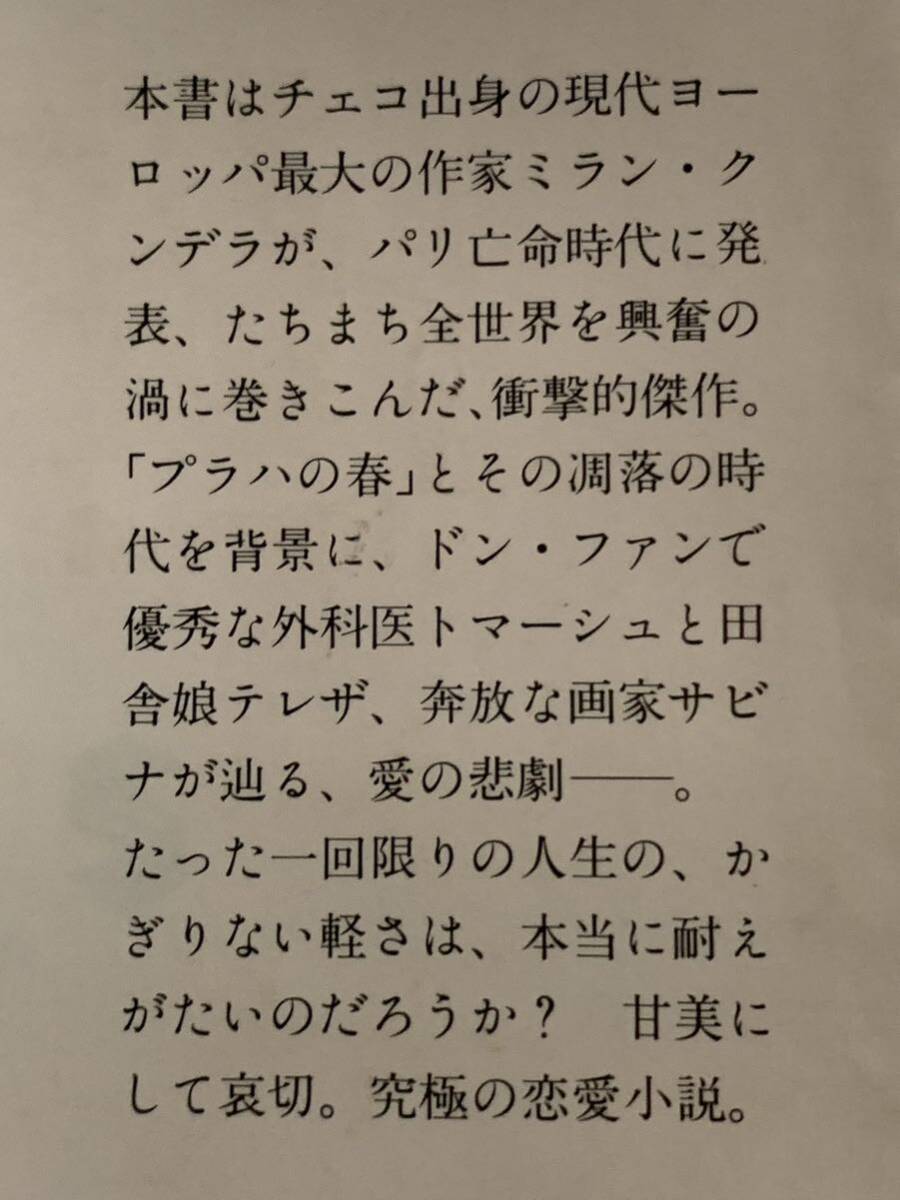 本書はチェコ出身の現代ヨー
ロッパ最大の作家ミラン・ク
ンデラが、パリ亡命時代に発
表、たちまち全世界を興奮の
渦に巻きこんだ、衝撃的傑作。
「プラハの春」とその凋落の時
代を背景に、ドン・ファンで
優秀な外科医トマーシュと田
舎娘テレザ、奔放な画家サビ
ナが辿る、愛の悲劇――。
たった一回限りの人生の、か
ぎりない軽さは、本当に耐え
がたいのだろうか？　甘美に
して哀切。究極の恋愛小説。